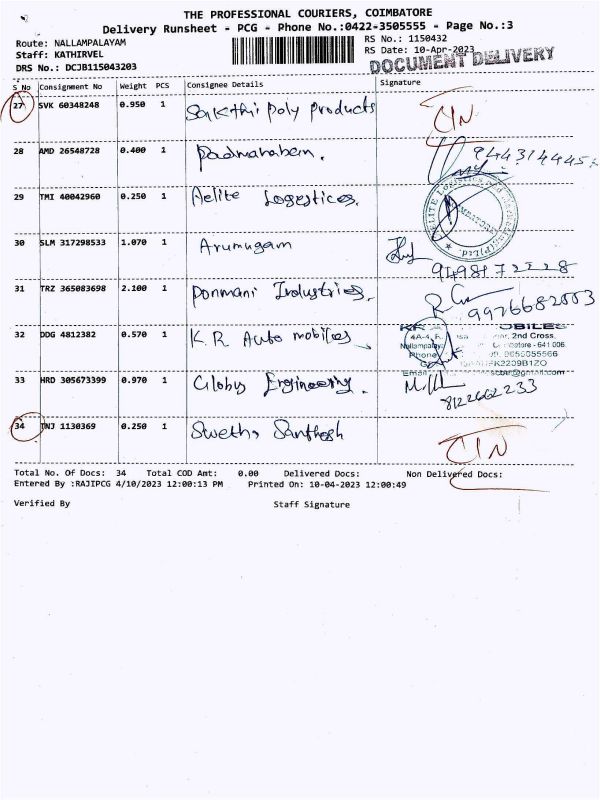 THE PROFESSIONAL COURIERS, COIMBATORE
Delivery Runsheet - PCG - Phone No.:0422-3505555 - Page No.:3
Route: NALLAMPALAYAM RS No.: 1150432
Staff: KATHIRVEL RS Date: 10-Apr-2023
DRS No.: DCJB115043203 DOCUMENT DELIVERY
S No Consignment No Weight PCS Consignee Details Signature
27 SVK 60348248 0.950 1 Sakthi Poly Products CIN
28 AMD 26548728 0.400 1 Padmanaben.
29 TMI 40042960 0.250 1 Aelite Logestices.
30 SLM 317298533 1.070 1 Arumugam
9498172228
31 TRZ 365083698 2.100 1 Ponmani Industries.
9976682003
32 DDG 4812382 0.570 1 K.R Auto mobiles
2nd Cross,
641 006.
Phone 9055055566
33 HRD 305673399 0.970 1 Globus Engineering.
8122662233
34 TNJ 1130369 0.250 1 Swetha Santhosh CIN
Total No. Of Docs: 34 Total COD Amt: 0.00 Delivered Docs: Non Delivered Docs:
Entered By :RAJIPCG 4/10/2023 12:00:13 PM Printed On: 10-04-2023 12:00:49
Verified By Staff Signature